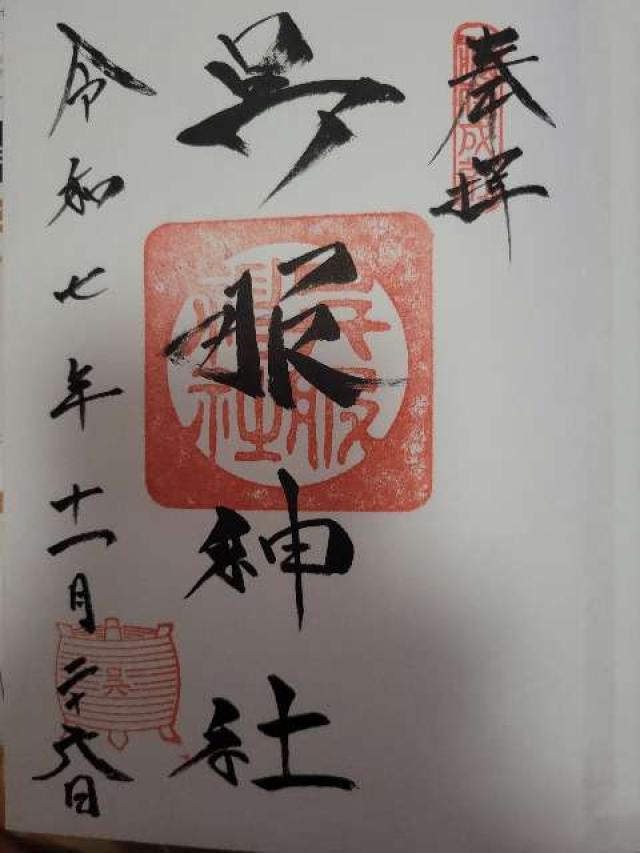 奉拝
呉服神社
令和七年十一月二十六日
呉服神社
呉